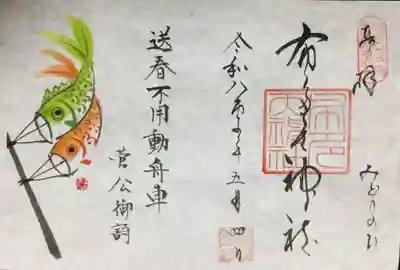 奉拝
みどりの日
布多天神社
令和八年
五月四日
送春不用動舟車
菅公御詩